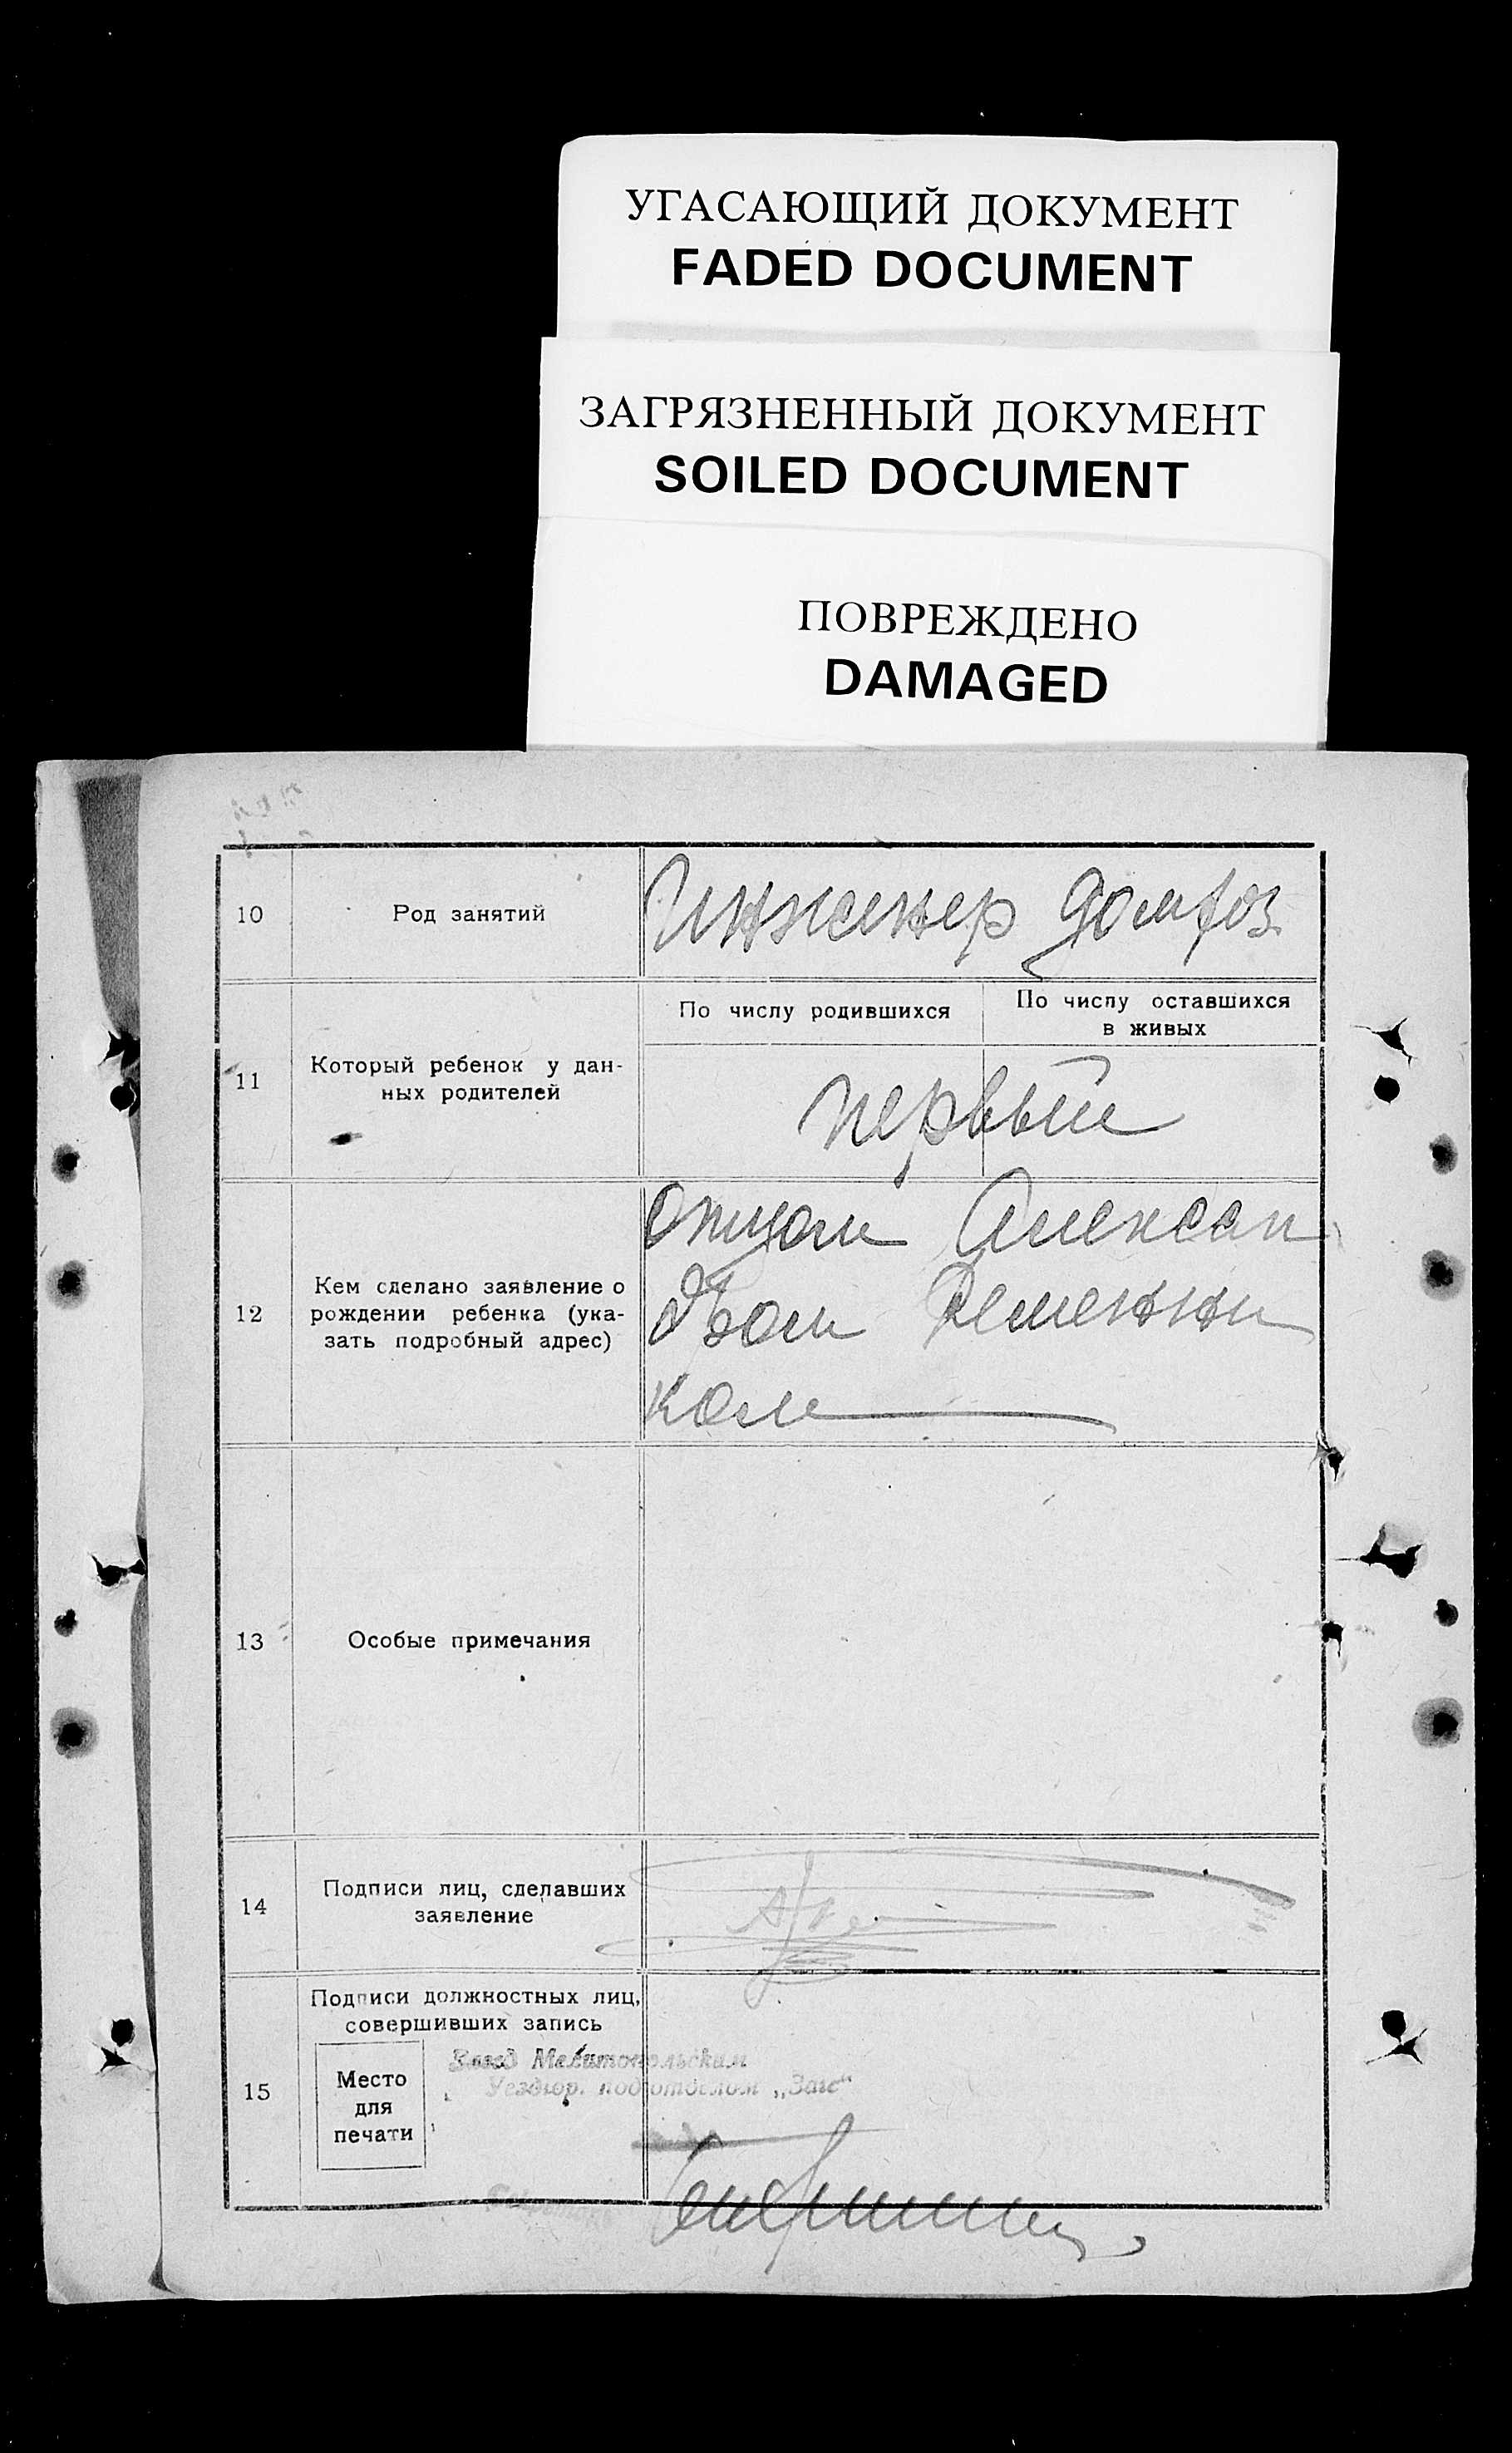 УГАСАЮЩИЙ ДОКУМЕНТ
FADED DOCUMENT
ЗАГРЯЗНЕННЫЙ ДОКУМЕНТ
SOILED DOCUMENT
ПОВРЕЖДЕНО
DAMAGED
10
Род занятий
Инженер
11
Который ребенок у дан-
ных родителей
По числу родившихся
По числу оставшихся
в живых
первый
12
Кем сделано заявление о
рождении ребенка (ука-
зать подробный адрес)
отцом Алексан
ком
13
Особые примечания
14
Подписи лиц, сделавших
заявление
15
Подписи должностных лиц,
совершивших запись
Место
для
печати
Завед Мелитопольским
Уездгор. подотделом „Загс“